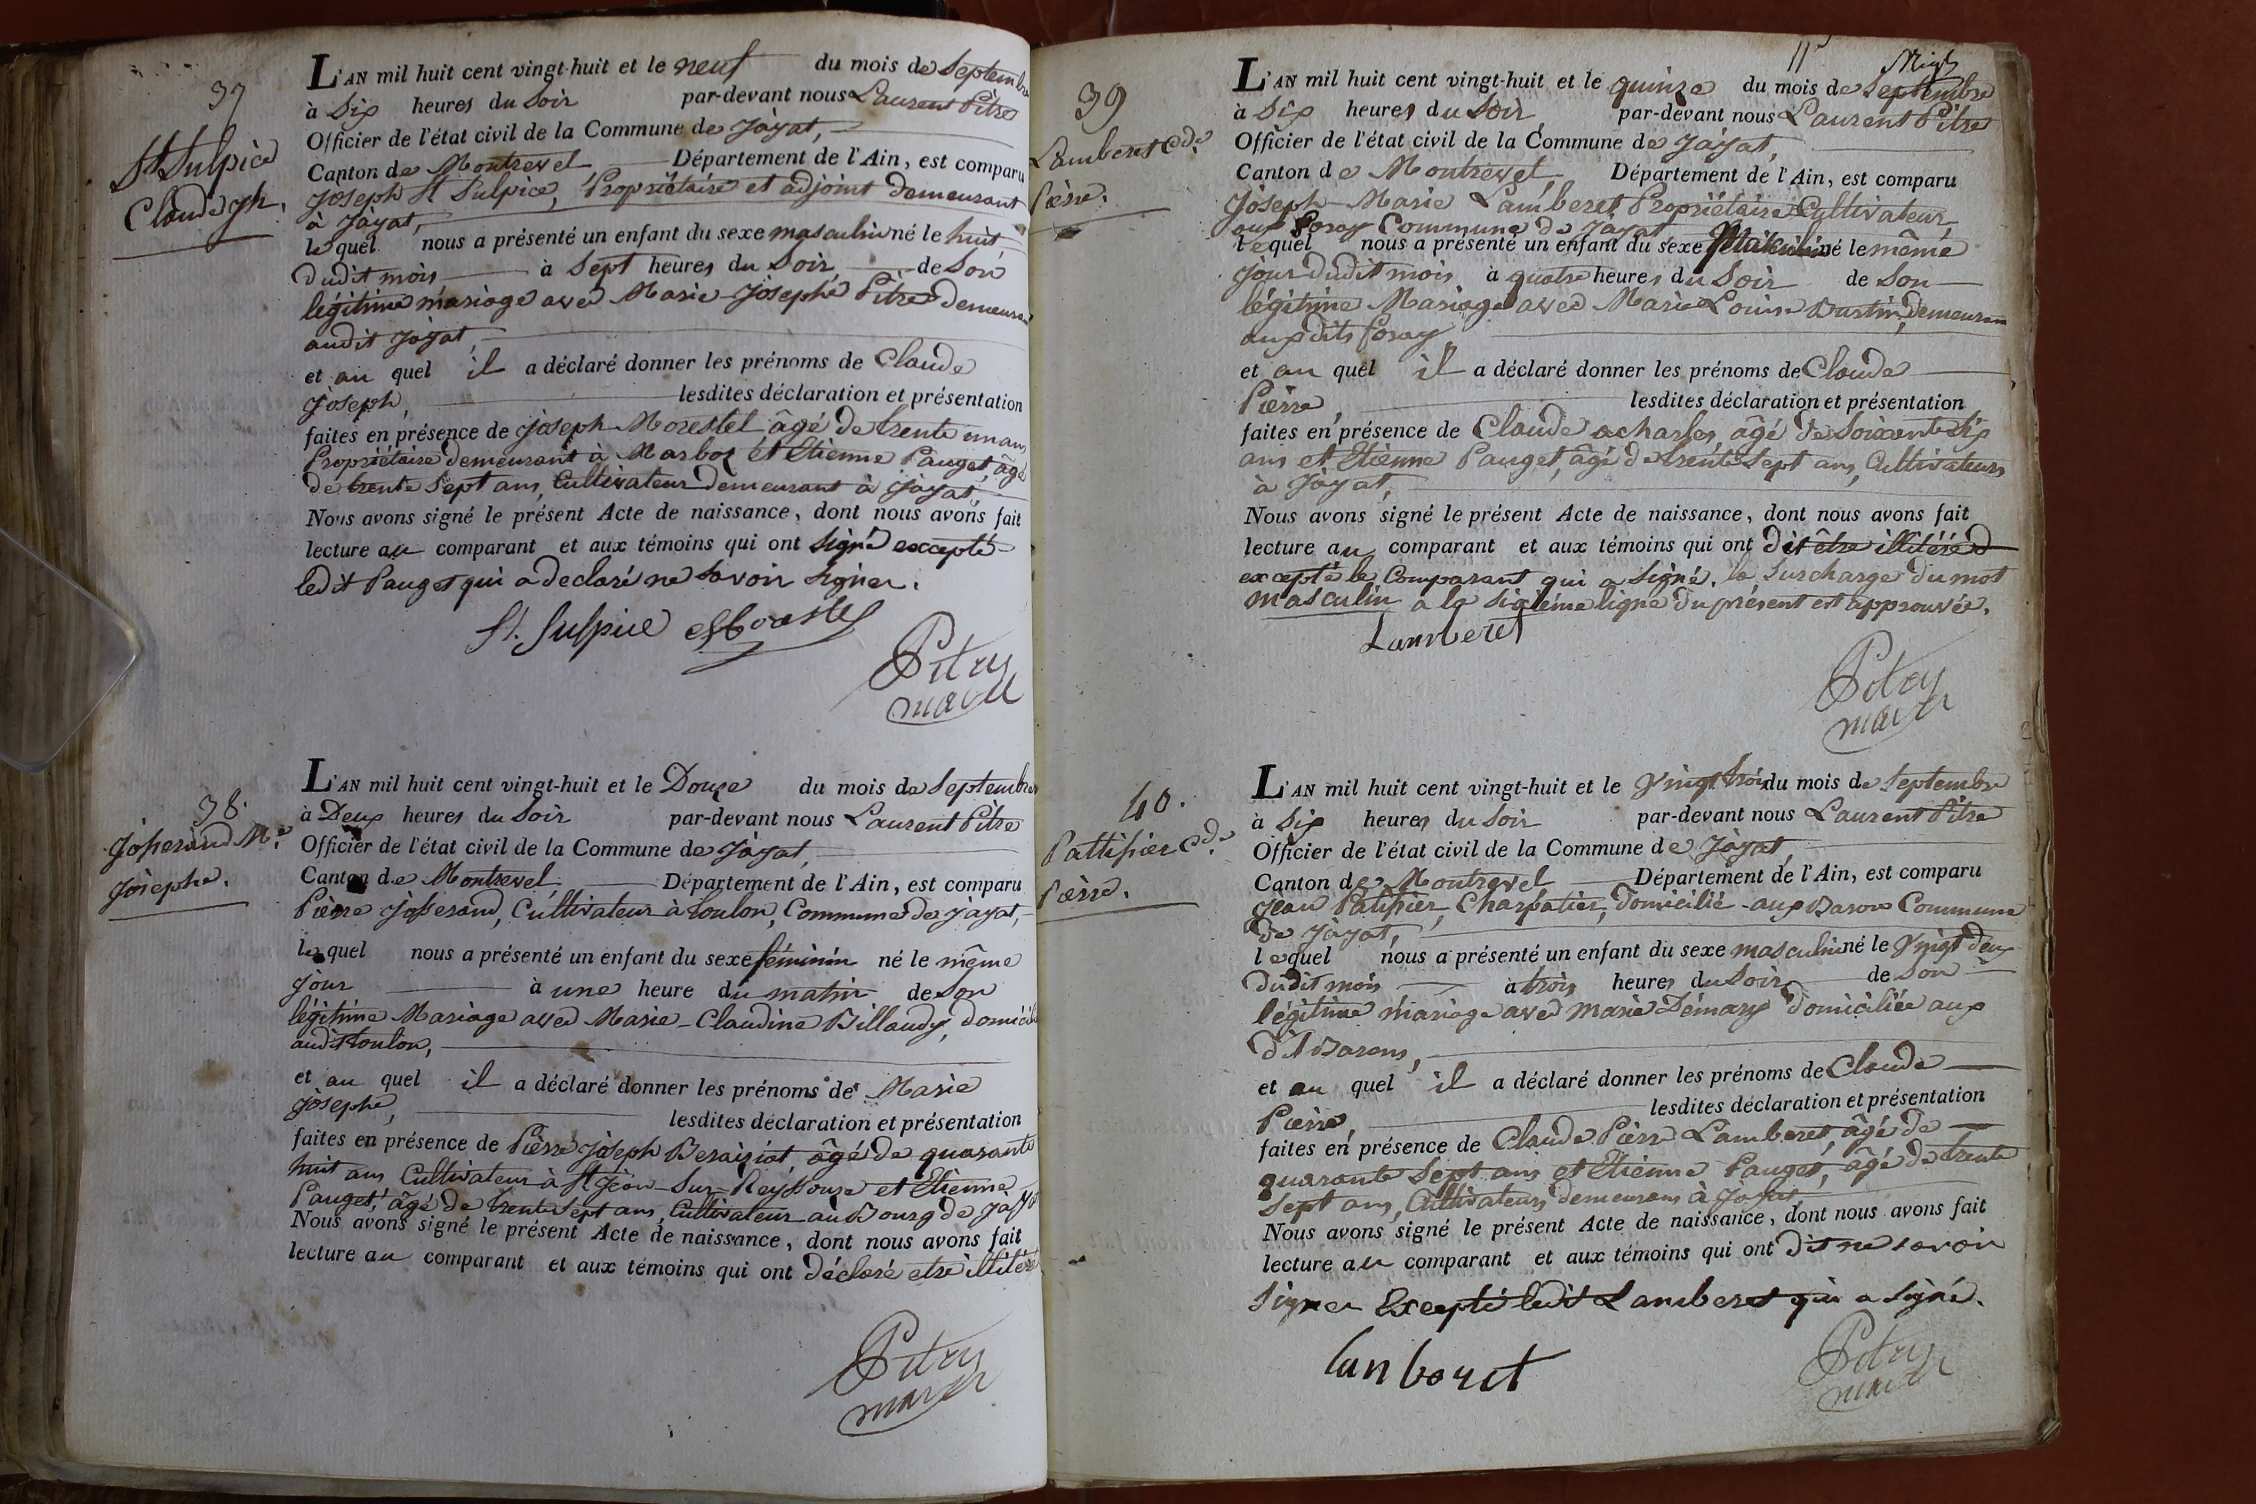 37
St Sulpice
Claude Jh.
L'AN mil huit cent vingt-huit et le neuf du mois de Septembre
à Six heures du Soir par-devant nous Laurent Pitre
Officier de l'état civil de la Commune de Jayat,
Canton de Montrevel Département de l'Ain, est comparu
Joseph St Sulpice, Propriétaire et adjoint demeurant
à Jayat,
lequel nous a présenté un enfant du sexe masculin né le huit
dudit mois à Sept heures du Soir, de Son
légitime mariage avec Marie Josephe Pitre demeurant
audit Jayat,
et au quel il a déclaré donner les prénoms de Claude
Joseph, lesdites déclaration et présentation
faites en présence de Joseph Morestel âgé de trente un ans
Propriétaire demeurant à Marboz et Etienne Pauget, âgé
de trente Sept ans, Cultivateur demeurant à Jayat,
Nous avons signé le présent Acte de naissance, dont nous avons fait
lecture au comparant et aux témoins qui ont signé excepté
ledit Pauget qui a declaré ne savoir signer.
St. Sulpice Morestel
Pitre
maire
38.
Josserand Me.
Josephe.
L'AN mil huit cent vingt-huit et le Douze du mois de Septembre
à Deux heures du Soir par-devant nous Laurent Pitre
Officier de l'état civil de la Commune de Jayat,
Canton de Montrevel Département de l'Ain, est comparu
Pierre Josserand, Cultivateur à Toulon, Commune de Jayat,
lequel nous a présenté un enfant du sexe féminin né le même
jour à une heure du matin de Son
légitime Mariage avec Marie-Claudine Billaudy, domicilié
audit Toulon,
et au quel il a déclaré donner les prénoms de Marie
Josephe, lesdites déclaration et présentation
faites en présence de Pierre Joseph âgé de quarante
huit ans Cultivateur à St Jean-Sur-Reyssouze et Etienne
Pauget, âgé de trente Sept ans, Cultivateur au Bourg de Jayat
Nous avons signé le présent Acte de naissance, dont nous avons fait
lecture au comparant et aux témoins qui ont déclaré etre illitérés
Pitre
maire
39
Lamberet Cde.
Pierre.
L'AN mil huit cent vingt-huit et le quinze du mois de Septembre
à Six heures du Soir par-devant nous Laurent Pitre
Officier de l'état civil de la Commune de Jayat,
Canton de Montrevel, Département de l'Ain, est comparu
Joseph-Marie Lamberet Propriétaire Cultivateur
aux Foray Commune de Jayat
lequel nous a présenté un enfant du sexe Masculin né le même
jour dudit mois à quatre heures du Soir de Son
légitime Mariage avec Marie Louise demeurant
auxdits foray
et au quel il a déclaré donner les prénoms de Claude
Pierre, lesdites déclaration et présentation
faites en présence de Claude âgé de Soixante Six
ans et Etienne Pauget, âgé de trente Sept ans, Cultivateurs
à Jayat,
Nous avons signé le présent Acte de naissance, dont nous avons fait
lecture au comparant et aux témoins qui ont dit être illitérés
excepté le Comparant qui a signé. la Surcharge du mot
masculin a la sixième ligne du présent est approuvée.
Lamberet
Pitre
maire
40.
Pattissier Cde.
Pierre.
L'AN mil huit cent vingt-huit et le Vingt trois du mois de Septembre
à Six heures du Soir par-devant nous Laurent Pitre
Officier de l'état civil de la Commune de Jayat,
Canton de Montrevel Département de l'Ain, est comparu
Jean Patissier, Charpatier, domicilié aux Barons Commune
de Jayat,
lequel nous a présenté un enfant du sexe masculin né le Vingt deux
dudit mois à trois heures du Soir de Son
légitime mariage avec Marie domiciliée aux
dt Barons,
et au quel il a déclaré donner les prénoms de Claude
Pierre, lesdites déclaration et présentation
faites en présence de Claude Pierre Lamberet, âgé de
quarante Sept ans et Etienne Pauget, âgé de trente
Sept ans, Cultivateurs demeurans à Jayat
Nous avons signé le présent Acte de naissance, dont nous avons fait
lecture au comparant et aux témoins qui ont dit ne savoir
signer Excepté ledit Lamberet qui a signé.
lamberet
Pitre
maire